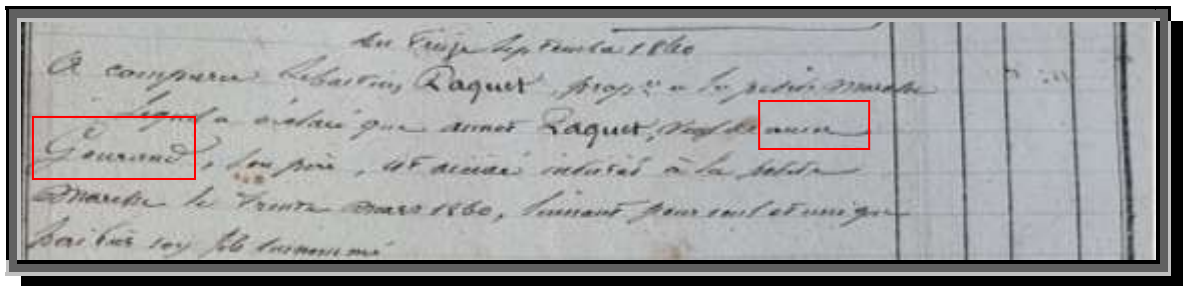 Du Treize Septembre 1860
A comparu Sébastien Raquet, propre a la petite marche
lequel a déclaré que annet Raquet, veuf de anne
Gourand, son père, est décédé intestat à la petite
marche le Trente mars 1860, laissant pour seul et unique
héritier son fils surnommé